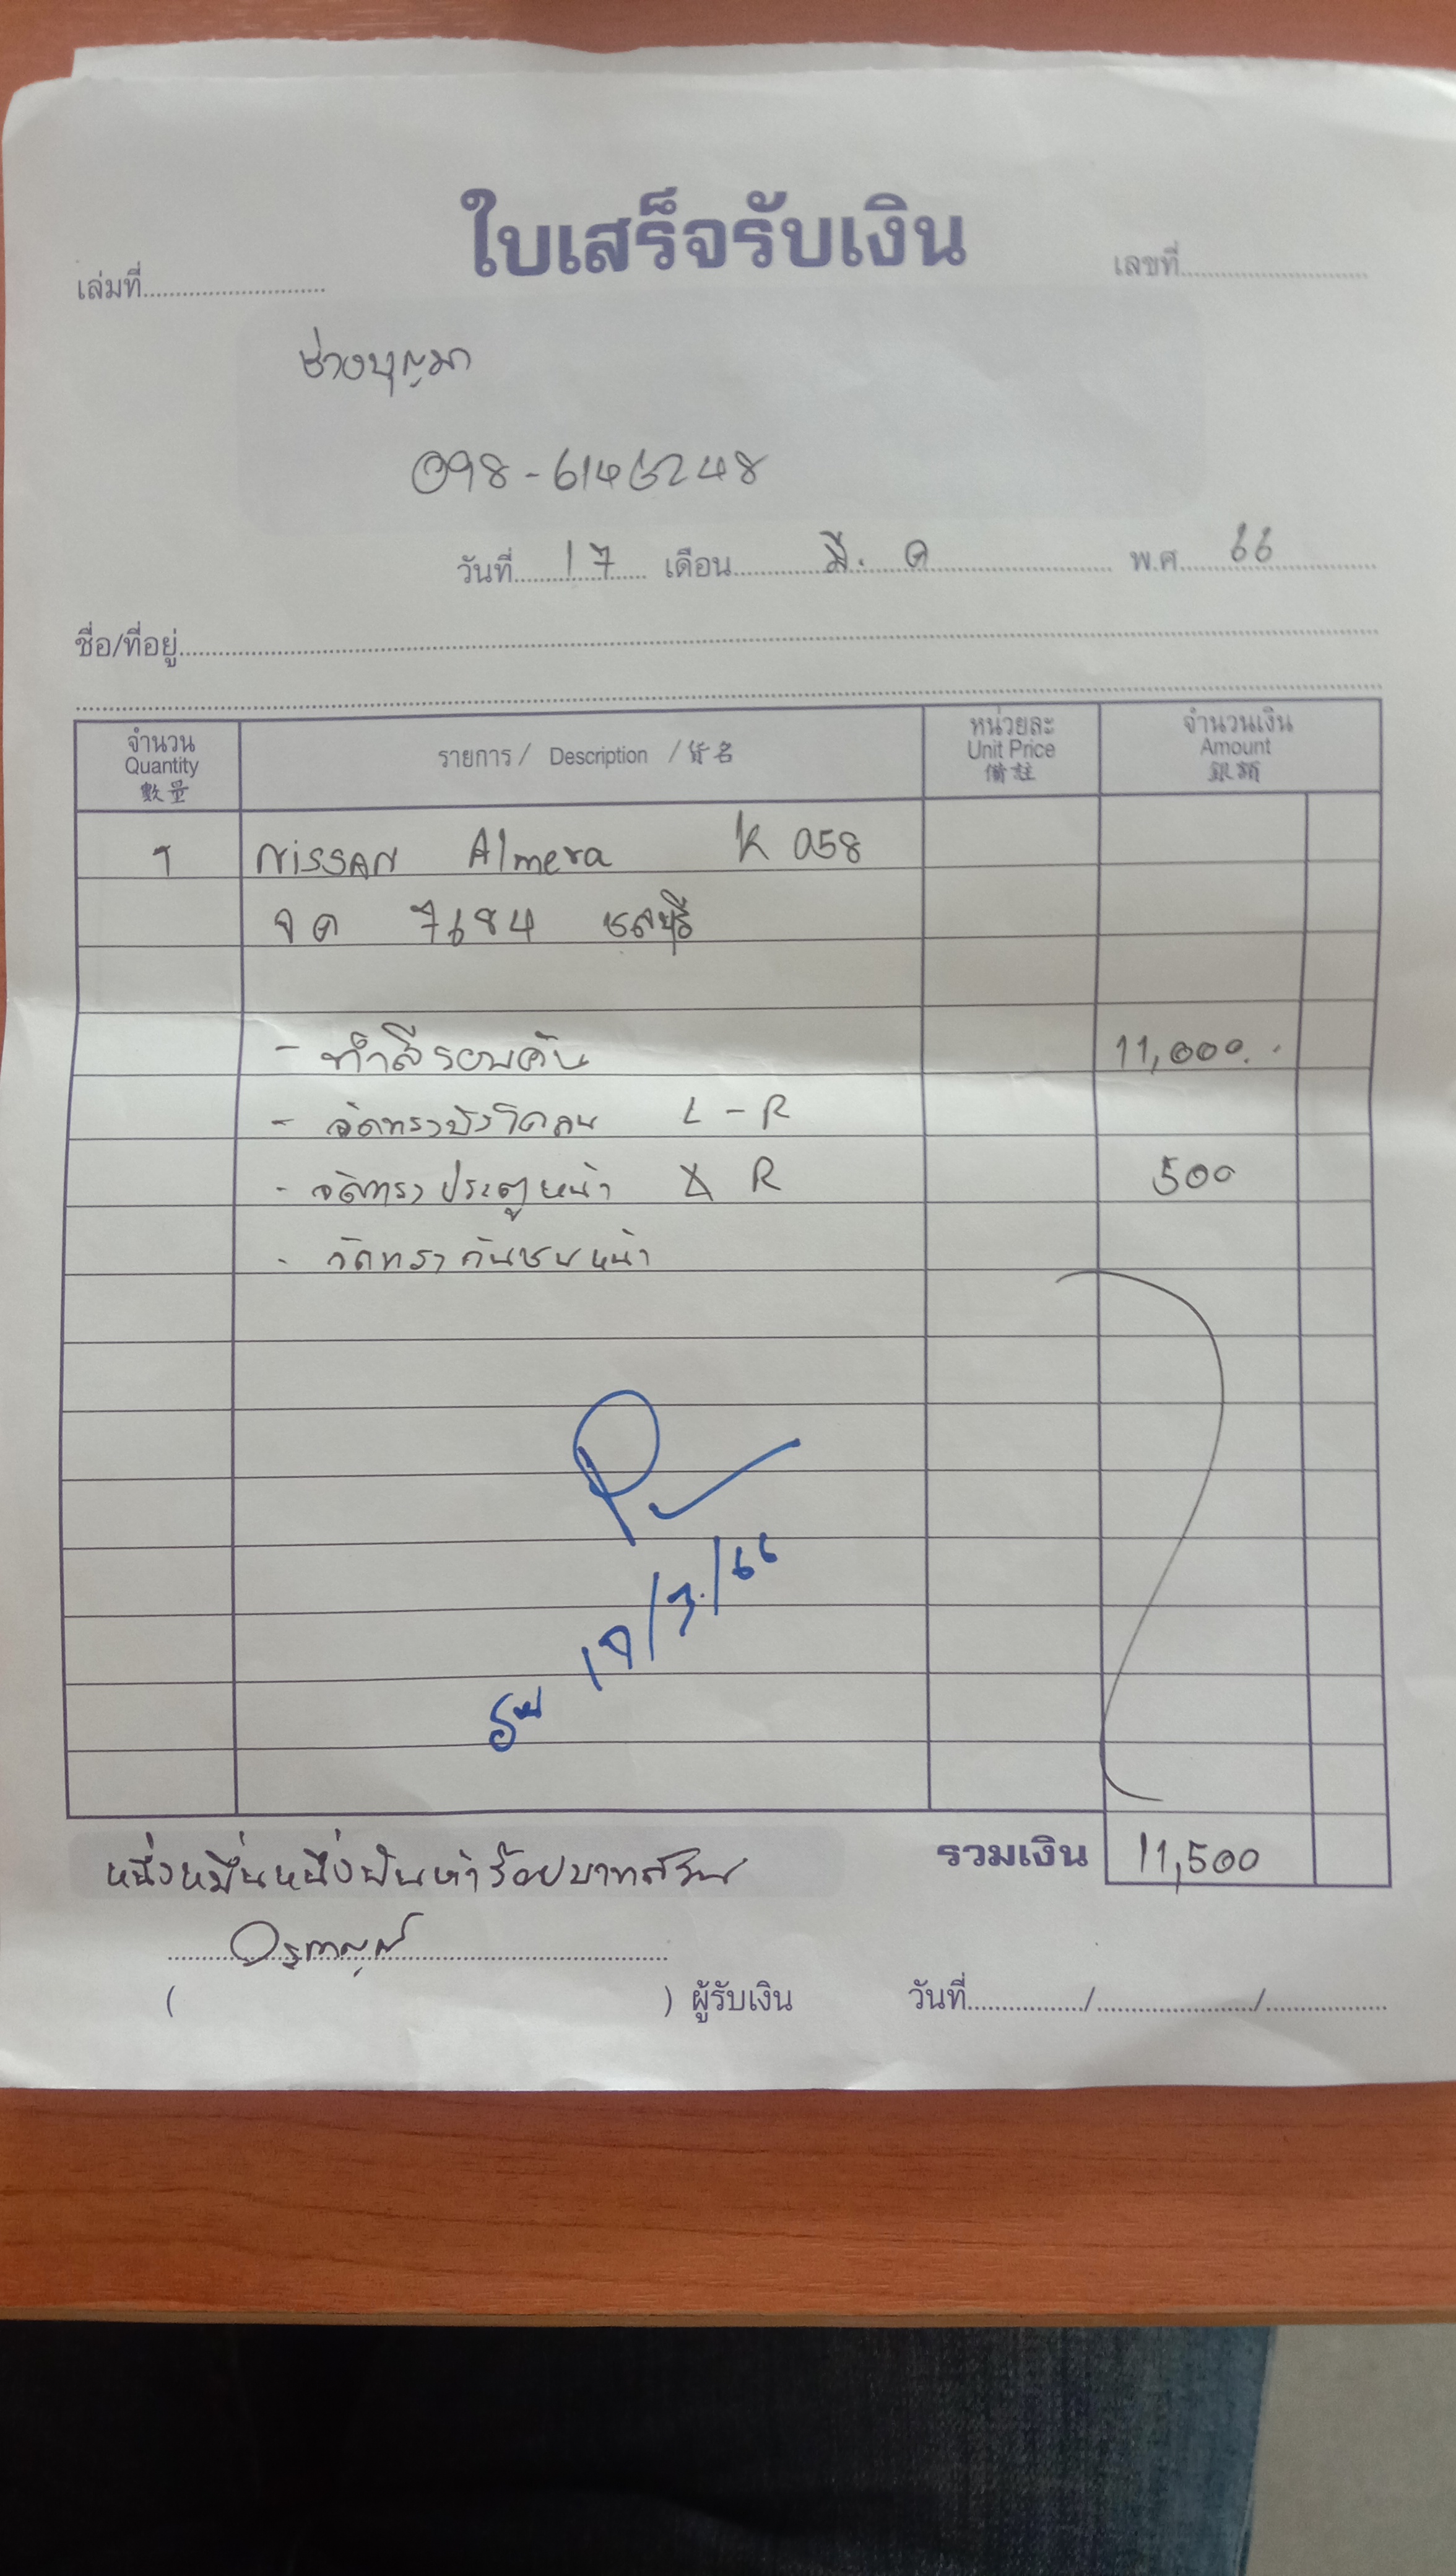 ใบเสร็จรับเงิน
เล่มที่ เลขที่
ช่างบุญมา
098-6146248
วันที่ 17 เดือน มี. ค พ.ศ. 66
ชื่อ/ที่อยู่
จำนวน Quantity 數量 รายการ / Description / 貨名 หน่วยละ Unit Price 備註 จำนวนเงิน Amount 銀額
1 NISSAN Almera K 058
จด 7684 ชลบุรี
- ทำสีรอบคัน 11,000.-
- จัดทรงบังโคลน L - R
- จัดทรง ประตูหน้า R 500
- จัดทรง กันชนหน้า
17/3/66
หนึ่งหมื่นหนึ่งพันห้าร้อยบาทถ้วน รวมเงิน 11,500
( ) ผู้รับเงิน วันที่ / /